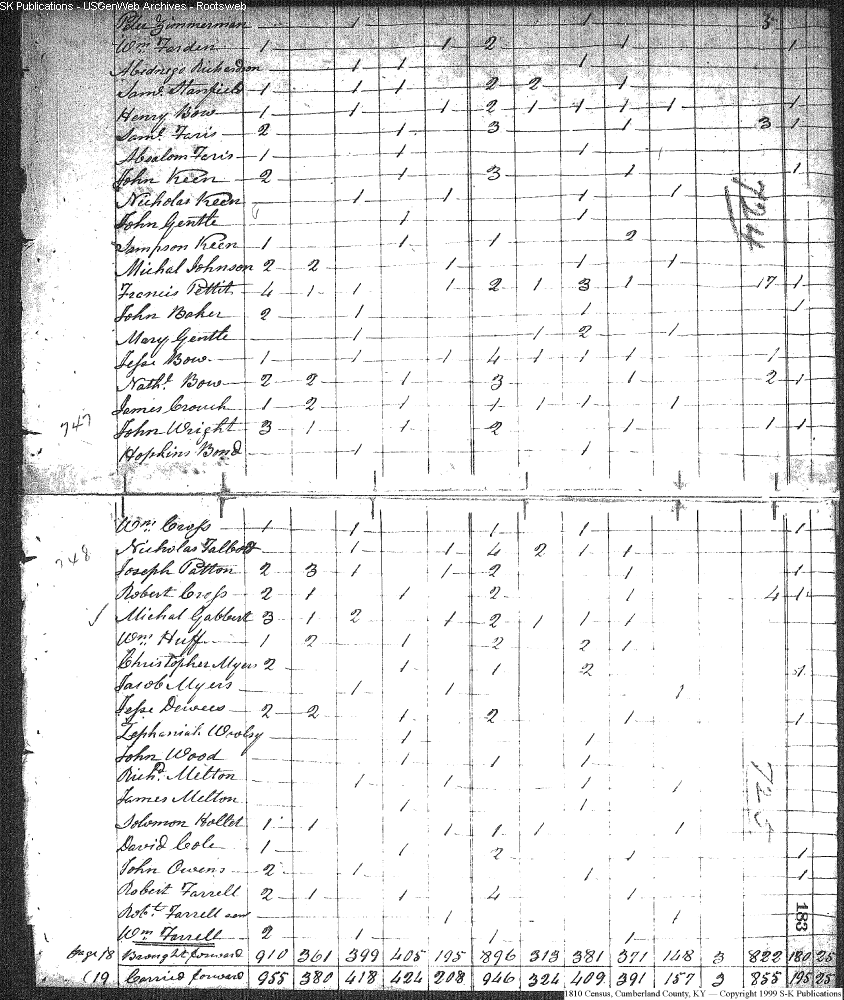 SK Publications - USGenWeb Archives - Rootsweb
Peter Zimmerman 1 1 3
Wm Farden 1 1 2 1 1
Abednego Richardson 1 1 1
Saml Stanfield 1 1 1 2 2 1
Henry Bow 1 1 1 2 1 1 1 1 1
Saml Faris 2 1 3 1 3 1
Absalom Faris 1 1 1
John Keen 2 1 3 1 1
Nicholas Keen 1 1 1 1
John Gentle 1 1
Sampson Keen 1 1 1 2
Michal Johnson 2 2 1 1 1
724
Francis Pettit 4 1 1 1 2 1 3 1 17 1
John Baker 2 1 1 1
Mary Gentle 1 1 2 1
Jesse Bow 1 1 1 4 1 1 1 1
Nathl Bow 2 2 1 3 1 2 1
James Crouch 1 2 1 1 1 1 1
747 John Wright 3 1 1 2 1 1 1
Hopkins Bond 1 1
Wm Cross 1 1 1 1 1
748 Nicholas Talbott 1 1 4 2 1 1
Joseph Patton 2 3 1 1 2 1 1
Robert Cross 2 1 1 2 1 4 1
Michal Gabbert 3 1 2 1 2 1 1 1
Wm Huff 1 2 1 2 2 1
Christopher Myers 2 1 1 2 1
Jacob Myers 1 1 1
Jesse Dewees 2 2 1 2 1 1
Zephaniah Woolsy 1 1
John Wood 1 1 1
Richd Melton 1 1 1 1
James Melton 1 1
725
Solomon Hollet 1 1 1 1 1 1
David Cole 1 1 2 1 1
John Owens 2 1 1 1
Robert Farrell 2 1 1 4 1
Robt Farrell 1 1
183
Wm Farrell 2 1 1 1
Page 18 Brought forward 910 361 399 405 195 896 313 381 371 148 3 822 180 25
(19 Carried forward 955 380 418 424 208 946 324 409 391 157 3 855 195 25
1810 Census, Cumberland County, KY — Copyright 1999 S-K Publications